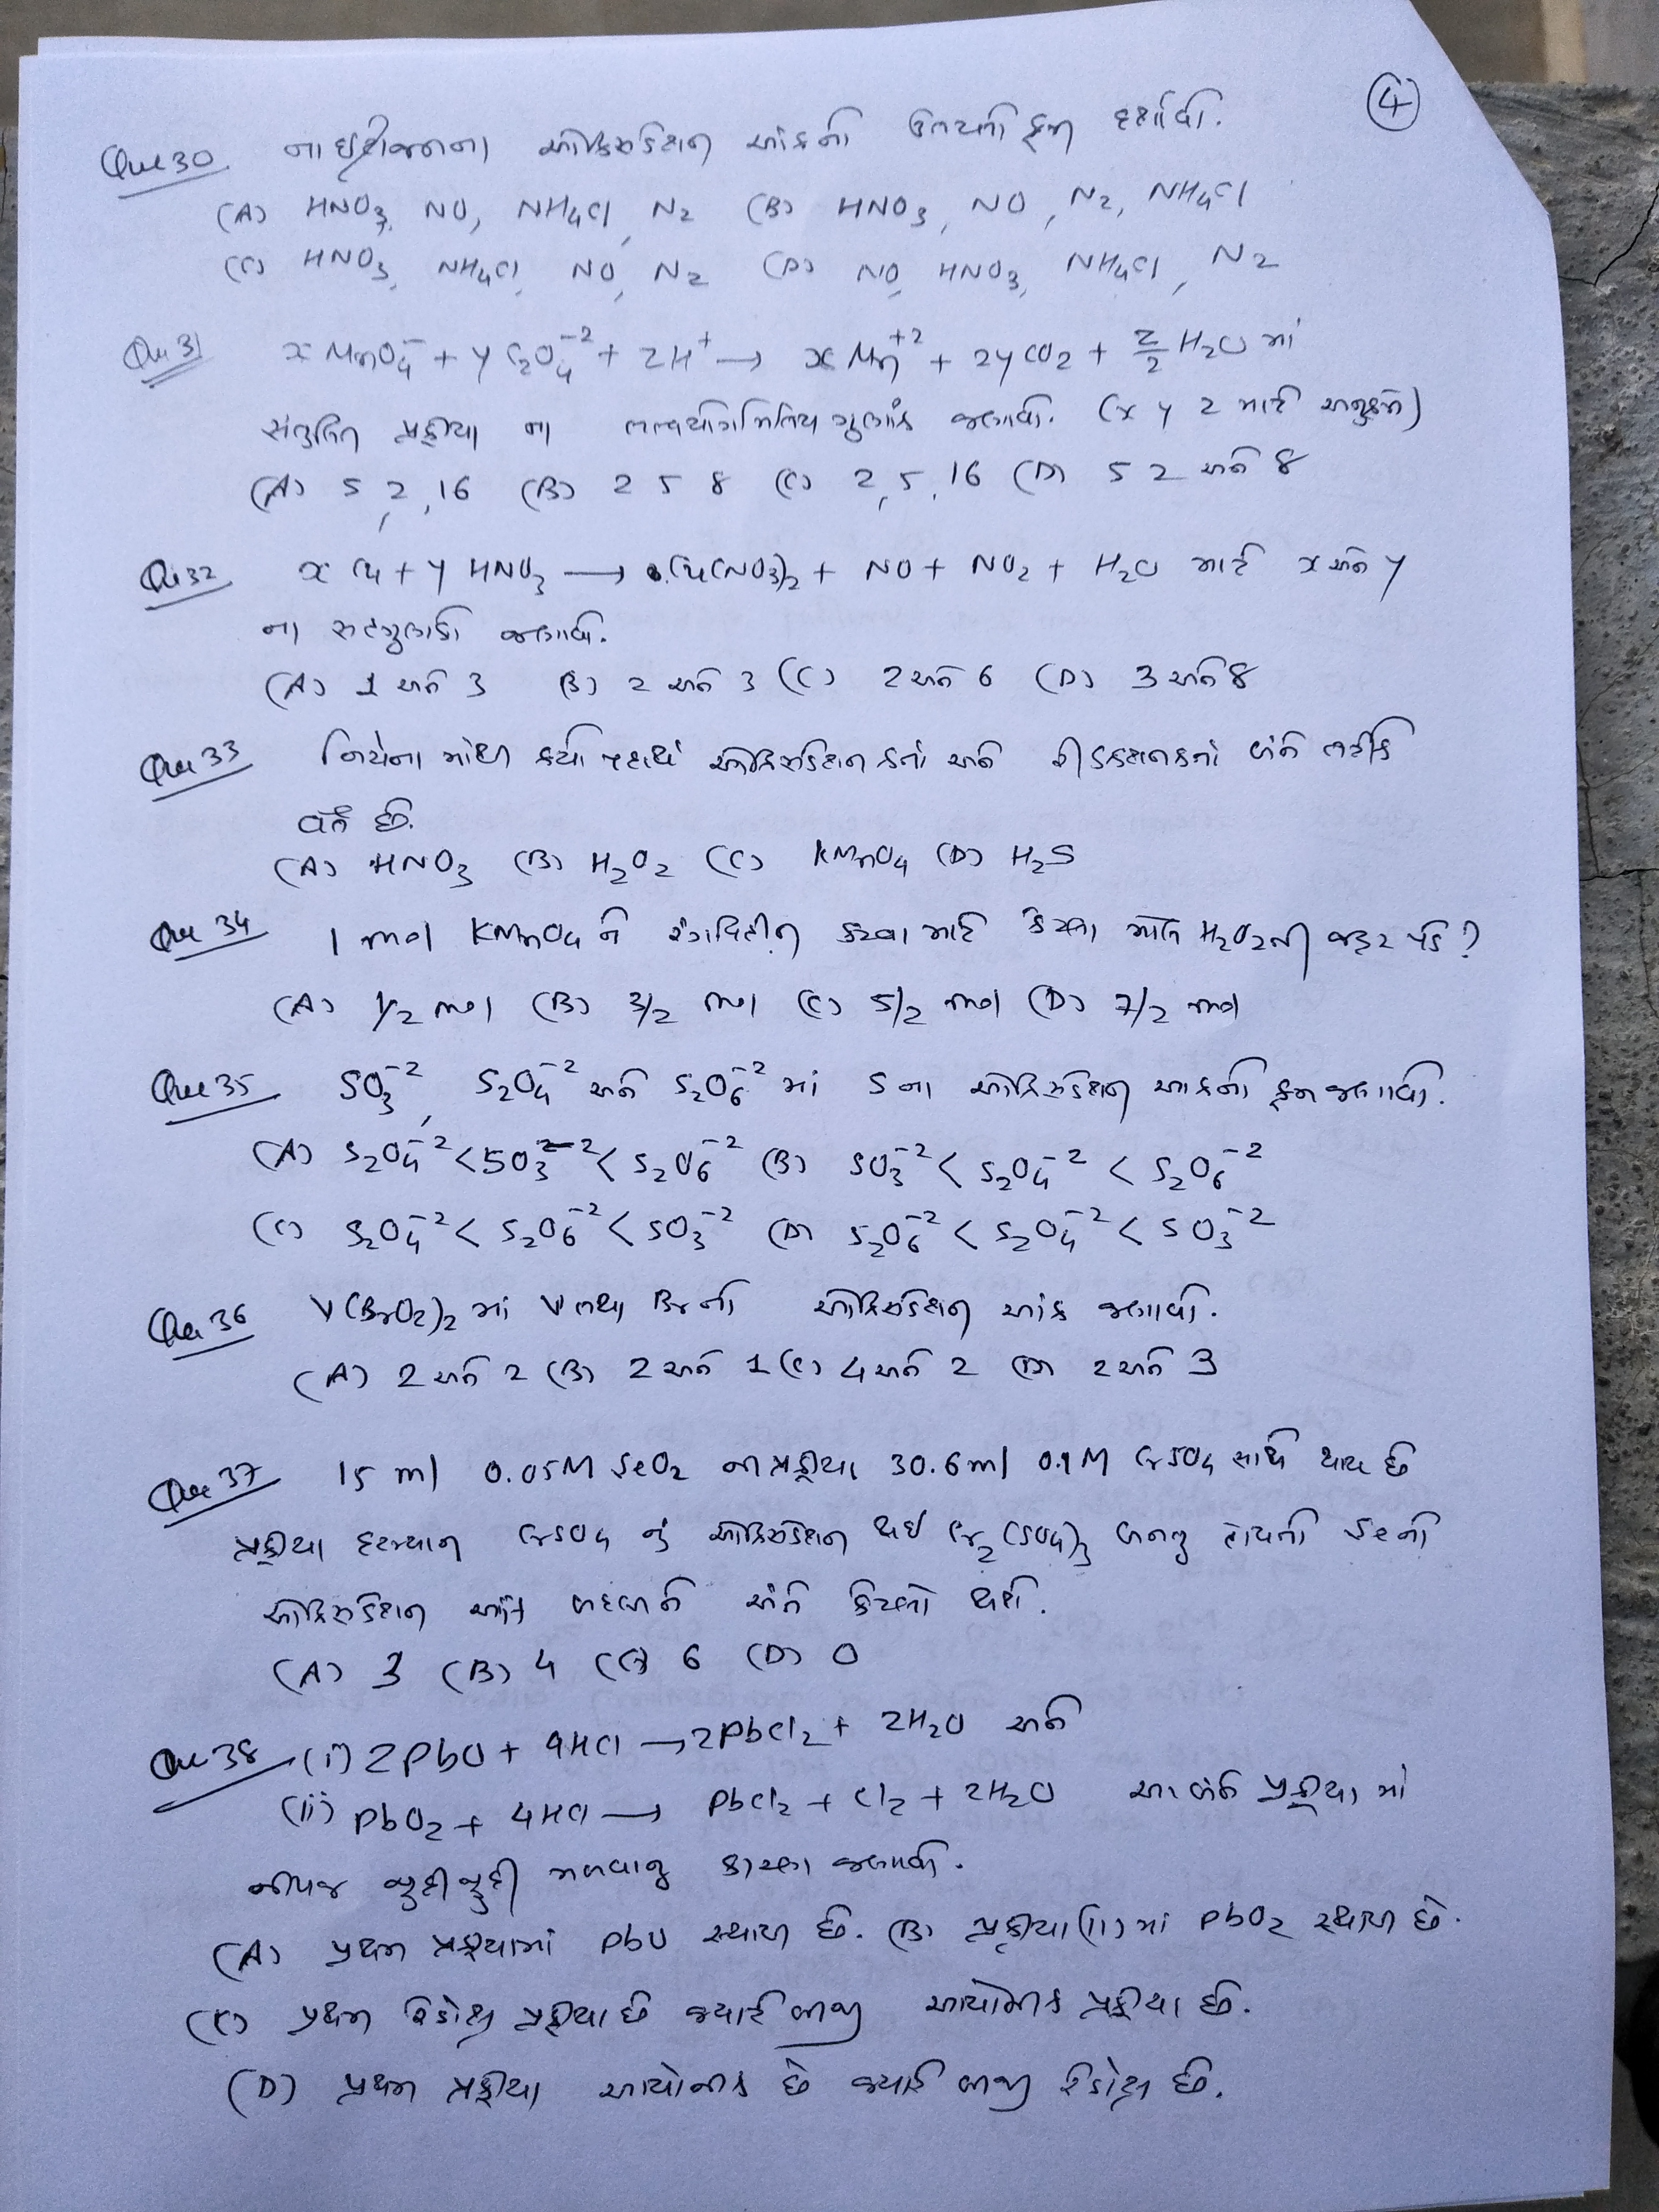 4
Que 30 નાઇટ્રોજનના ઓક્સિડેશન આંકનો ઉતરતો ક્રમ દર્શાવો.
(A) HNO₃, NO, NH₄Cl, N₂ (B) HNO₃, NO, N₂, NH₄Cl
(C) HNO₃, NH₄Cl, NO, N₂ (D) NO, HNO₃, NH₄Cl, N₂
Que 31 x MnO₄⁻ + y C₂O₄⁻² + zH⁺ → x Mn⁺² + 2y CO₂ + z/2 H₂O માં
સંતુલિત પ્રક્રીયા ના તત્વયોગમિતિય ગુણાંક જણાવો. (x y z માટે અનુક્રમે)
(A) 5, 2, 16 (B) 2 5 8 (C) 2, 5, 16 (D) 5 2 અને 8
Que 32 x Cu + y HNO₃ → Cu(NO₃)₂ + NO + NO₂ + H₂O માટે x અને y
ના સહગુણાકો જણાવો.
(A) 1 અને 3 (B) 2 અને 3 (C) 2 અને 6 (D) 3 અને 8
Que 33 નિચેના માંથી કયો પદાર્થ ઓક્સિડેશનકર્તા અને રીડક્શનકર્તા બંને તરીકે
વર્તે છે.
(A) HNO₃ (B) H₂O₂ (C) KMnO₄ (D) H₂S
Que 34 1 mol KMnO₄ ને રંગવિહીન કરવા માટે કેટલા મોલ H₂O₂ની જરૂર પડે?
(A) 1/2 mol (B) 3/2 mol (C) 5/2 mol (D) 7/2 mol
Que 35 SO₃⁻², S₂O₄⁻² અને S₂O₆⁻² માં S ના ઓક્સિડેશન આંકનો ક્રમ જણાવો.
(A) S₂O₄⁻² < SO₃⁻² < S₂O₆⁻² (B) SO₃⁻² < S₂O₄⁻² < S₂O₆⁻²
(C) S₂O₄⁻² < S₂O₆⁻² < SO₃⁻² (D) S₂O₆⁻² < S₂O₄⁻² < SO₃⁻²
Que 36 V(BrO₂)₂ માં V તથા Br નો ઓક્સિડેશન આંક જણાવો.
(A) 2 અને 2 (B) 2 અને 1 (C) 4 અને 2 (D) 2 અને 3
Que 37 15 ml 0.05M SeO₂ ની પ્રક્રીયા 30.6 ml 0.1M CrSO₄ સાથે થાય છે
પ્રક્રીયા દરમ્યાન CrSO₄ નું ઓક્સિડેશન થઇ Cr₂(SO₄)₃ બનતુ હોયતો Se નો
ઓક્સિડેશન આંક બદલાતે અંતે કેટલો થશે.
(A) 3 (B) 4 (C) 6 (D) 0
Que 38 (i) 2PbO + 4HCl → 2PbCl₂ + 2H₂O અને
(ii) PbO₂ + 4HCl → PbCl₂ + Cl₂ + 2H₂O આ બંને પ્રક્રીયા માં
નીપજ જુદી જુદી મળવાનુ કારણ જણાવો.
(A) પ્રથમ પ્રક્રીયામાં PbO સ્થાયી છે. (B) પ્રક્રીયા (ii) માં PbO₂ સ્થાયી છે.
(C) પ્રથમ રેડોક્ષ પ્રક્રીયા છે જ્યારે બીજી આયોનીક પ્રક્રીયા છે.
(D) પ્રથમ પ્રક્રીયા આયોનીક છે જ્યારે બીજી રેડોક્ષ છે.